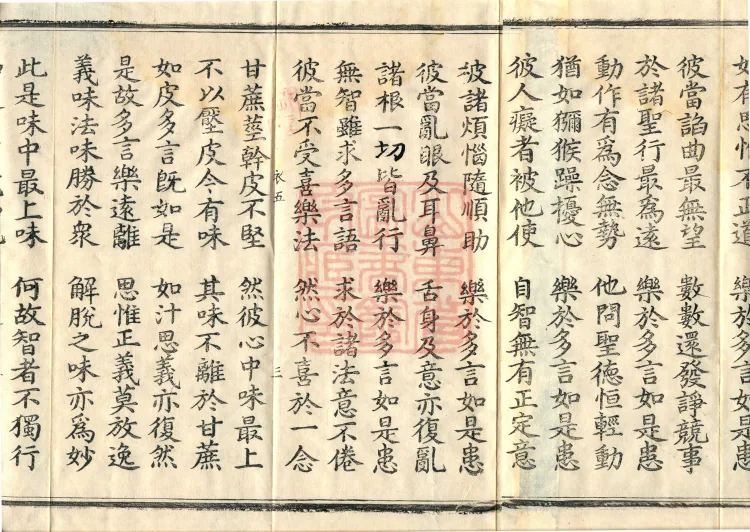 如有思惟不正道
彼當諂曲最無望 數數還發諍競事
於諸聖行最為遠 樂於多言如是患
動作有為念無勢 他問聖德恒輕動
猶如獼猴躁擾心 樂於多言如是患
彼人癡者被他使 自智無有正定意
被諸煩惱隨順助 樂於多言如是患
彼當亂眼及耳鼻 舌身及意亦復亂
諸根一切皆亂行 樂於多言如是患
無智雖求多言語 求於諸法意不倦
彼當不受喜樂法 然心不喜於一念
三
甘蔗莖幹皮不堅 然彼心中味最上
不以壓皮令有味 其味不離於甘蔗
如皮多言既如是 如汁思義亦復然
是故多言樂遠離 思惟正義莫放逸
義味法味勝於衆 解脫之味亦爲妙
此是味中最上味 何故智者不獨行